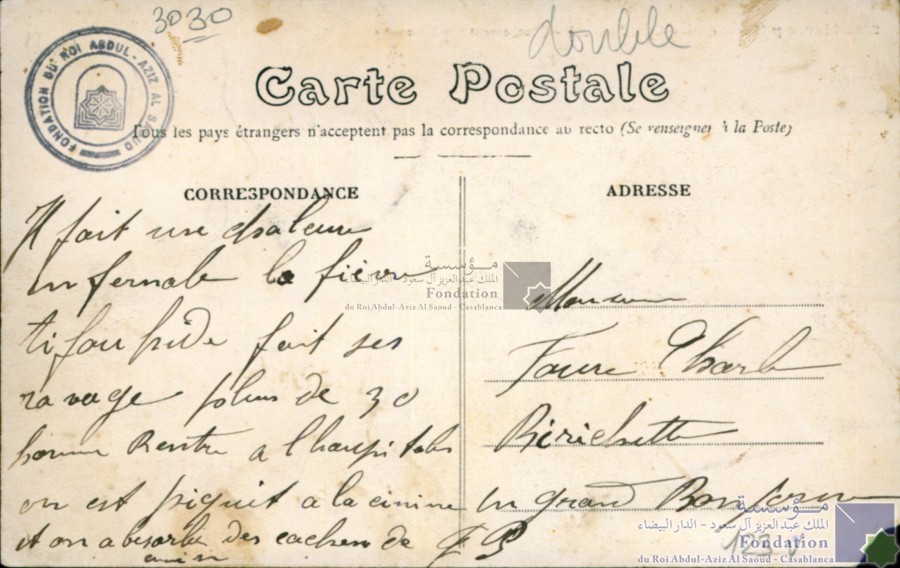 3030
double
FONDATION DU ROI ABDUL-AZIZ AL SAOUD
Carte Postale
Tous les pays étrangers n'acceptent pas la correspondance au recto (Se renseigner à la Poste)
CORRESPONDANCE
Il fait une chaleur
infernale la fièvre
tifouhide fait ses
ravage plus de 30
homme rentre a l'haupitale
on est piquit a la cinine
et on absorbe des cachen de
ADRESSE
Monsieur
Faure Charle
un grand
مؤسسة
الملك عبد العزيز آل سعود - الدار البيضاء
Fondation
du Roi Abdul-Aziz Al Saoud - Casablanca
مؤسسة
الملك عبد العزيز آل سعود – الدار البيضاء
Fondation
du Roi Abdul-Aziz Al Saoud - Casablanca